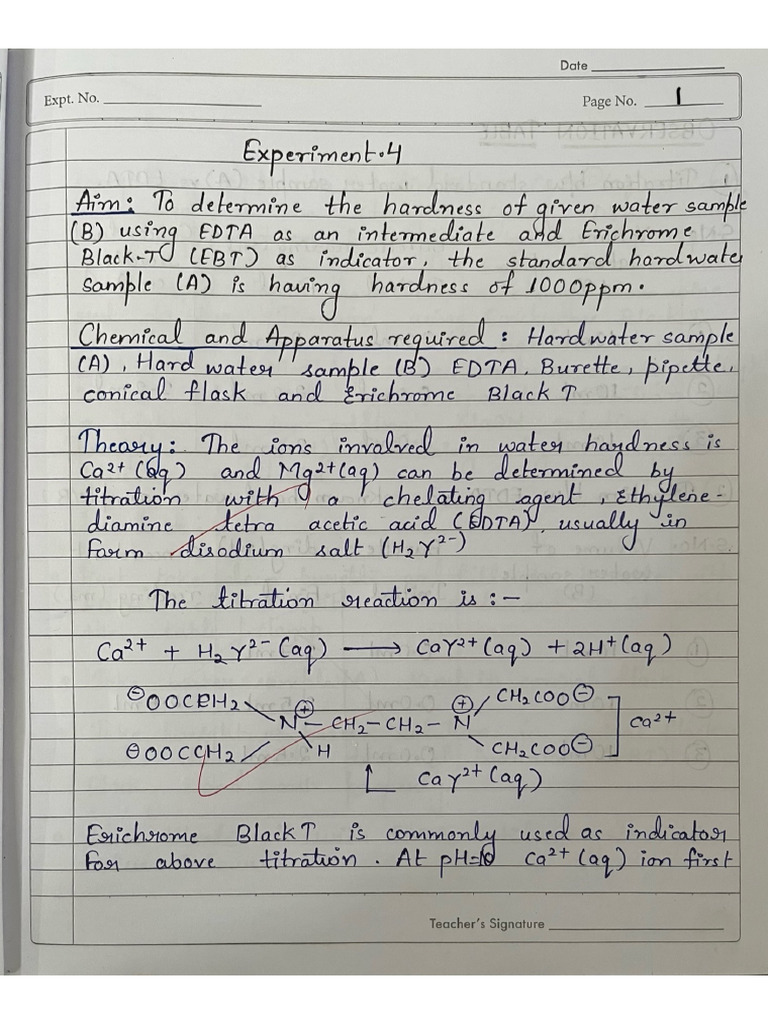 Date
Expt. No.
Page No. 1
Experiment.4
Aim: To determine the hardness of given water sample
(B) using EDTA as an intermediate and Erichrome
Black-T (EBT) as indicator, the standard hardwater
sample (A) is having hardness of 1000ppm.
Chemical and Apparatus required : Hardwater sample
(A), Hard water sample (B) EDTA, Burette, pipette,
conical flask and Erichrome Black T
Theory: The ions involved in water hardness is
Ca2+ (aq) and Mg2+(aq) can be determined by
titration with a chelating agent, Ethylene-
diamine tetra acetic acid (EDTA), usually in
Farm disodium salt (H2Y2-)
The titration reaction is :-
Ca2+ + H2Y2- (aq) ⟶ CaY2+(aq) + 2H+(aq)
⊖OOCCH2 ⊕ ⊕ CH2COO⊖
N-CH2-CH2-N Ca2+
⊖OOCCH2 H CH2COO⊖
↑ CaY2+(aq)
Erichrome Black T is commonly used as indicator
For above titration. At pH=10 Ca2+(aq) ion first
Teacher's Signature